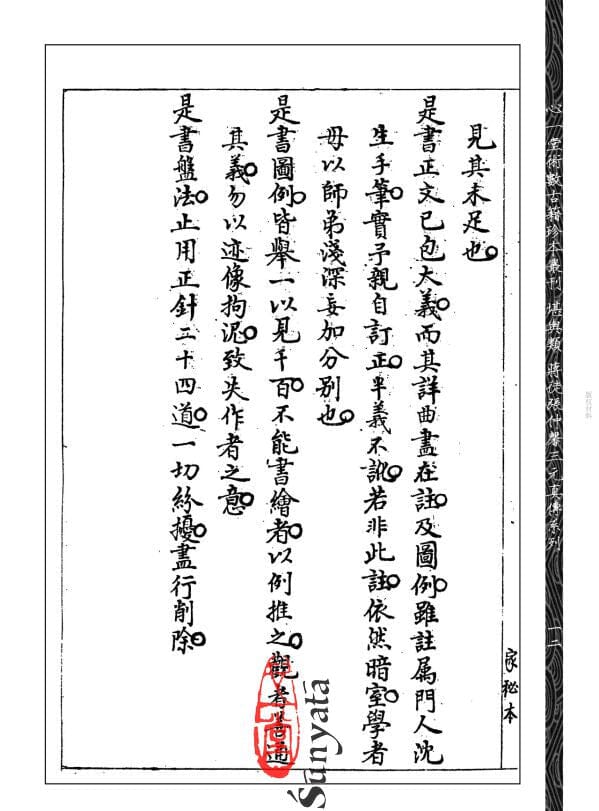 見其未足也。
是書正文已包大義。而其詳曲盡在註。及圖例。雖註属門人沈
生手筆。實予親自訂正。半義不訛。若非此註。依然暗室。學者
毋以師弟淺深妄加分别也。
是書圖例。皆舉一以見千百。不能書繪者。以例推之。觀者善通
其義。勿以迹像拘泥。致失作者之意。
是書盤法。止用正針二十四道。一切紛擾。盡行削除。
家秘本
心一堂術數古籍珍本叢刊 堪輿類 蔣徒張仲馨三元真傳系列
一二
Śūnyatā